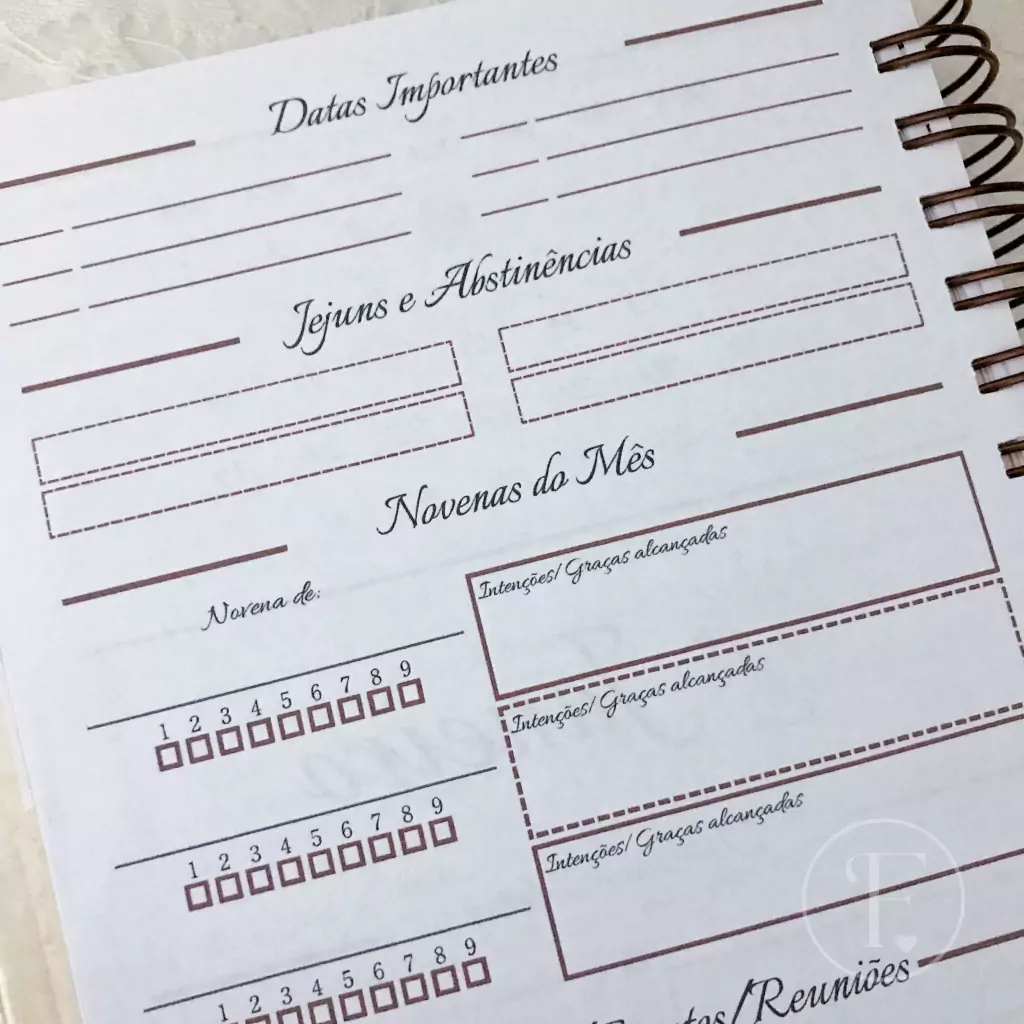 Datas Importantes
Jejuns e Abstinências
Novenas do Mês
Novena de:
1 2 3 4 5 6 7 8 9
1 2 3 4 5 6 7 8 9
1 2 3 4 5 6 7 8 9
Intenções/ Graças alcançadas
Intenções/ Graças alcançadas
Intenções/ Graças alcançadas
/Reuniões
F